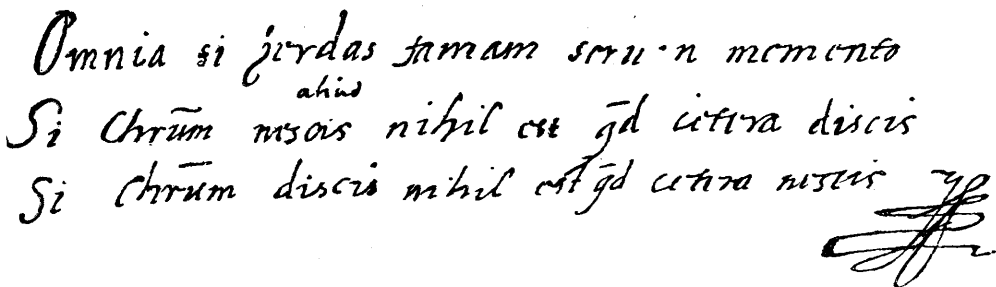 Omnia si perdas famam seru·n memento
aliud
Si Chrūm nescis nihil est q̄d cetera discis
Si Chrūm discis nihil est q̄d cetera nescis